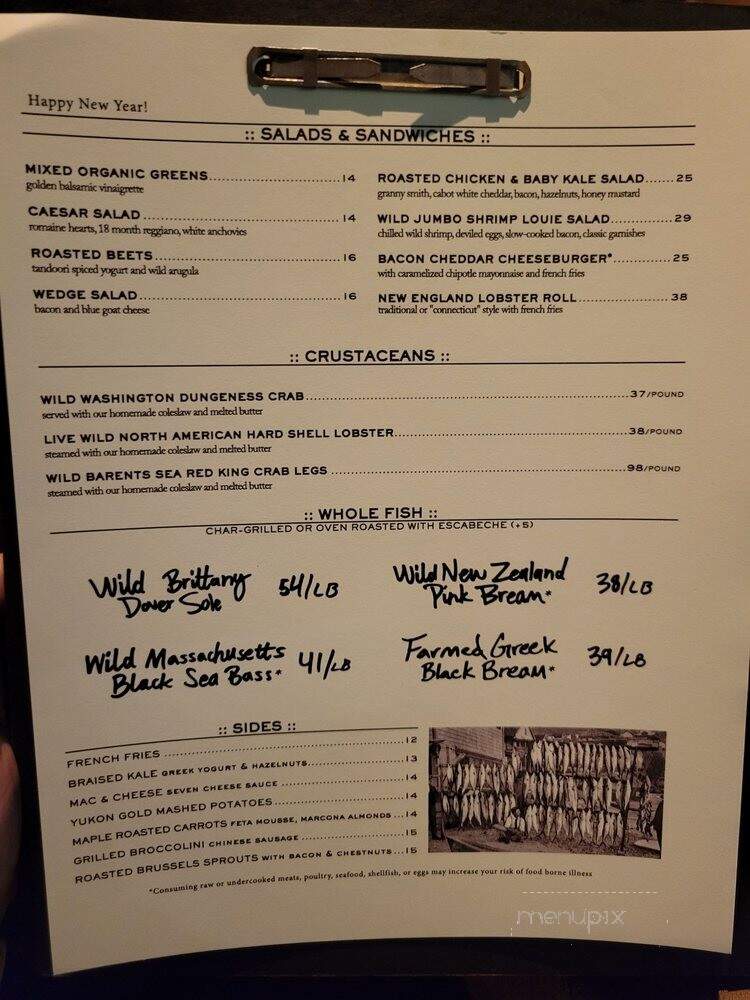 Happy New Year!
:: SALADS & SANDWICHES ::
MIXED ORGANIC GREENS..............................14
golden balsamic vinaigrette
CAESAR SALAD..............................14
romaine hearts, 18 month reggiano, white anchovies
ROASTED BEETS..............................16
tandoori spiced yogurt and wild arugula
WEDGE SALAD..............................16
bacon and blue goat cheese
ROASTED CHICKEN & BABY KALE SALAD.......25
granny smith, cabot white cheddar, bacon, hazelnuts, honey mustard
WILD JUMBO SHRIMP LOUIE SALAD...............29
chilled wild shrimp, deviled eggs, slow-cooked bacon, classic garnishes
BACON CHEDDAR CHEESEBURGER*...............25
with caramelized chipotle mayonnaise and french fries
NEW ENGLAND LOBSTER ROLL......................38
traditional or "connecticut" style with french fries
:: CRUSTACEANS ::
WILD WASHINGTON DUNGENESS CRAB..............................37/POUND
served with our homemade coleslaw and melted butter
LIVE WILD NORTH AMERICAN HARD SHELL LOBSTER..............................38/POUND
steamed with our homemade coleslaw and melted butter
WILD BARENTS SEA RED KING CRAB LEGS..............................98/POUND
steamed with our homemade coleslaw and melted butter
:: WHOLE FISH ::
CHAR-GRILLED OR OVEN ROASTED WITH ESCABECHE (+5)
Wild Brittany 54/LB
Dover Sole
Wild New Zealand 38/LB
Pink Bream*
Wild Massachusetts 41/LB
Black Sea Bass*
Farmed Greek 39/LB
Black Bream*
:: SIDES ::
FRENCH FRIES..............................12
BRAISED KALE GREEK YOGURT & HAZELNUTS...............13
MAC & CHEESE SEVEN CHEESE SAUCE...............14
YUKON GOLD MASHED POTATOES...............14
MAPLE ROASTED CARROTS FETA MOUSSE, MARCONA ALMONDS...14
GRILLED BROCCOLINI CHINESE SAUSAGE...............15
ROASTED BRUSSELS SPROUTS WITH BACON & CHESTNUTS...15
*Consuming raw or undercooked meats, poultry, seafood, shellfish, or eggs may increase your risk of food borne illness
menupix